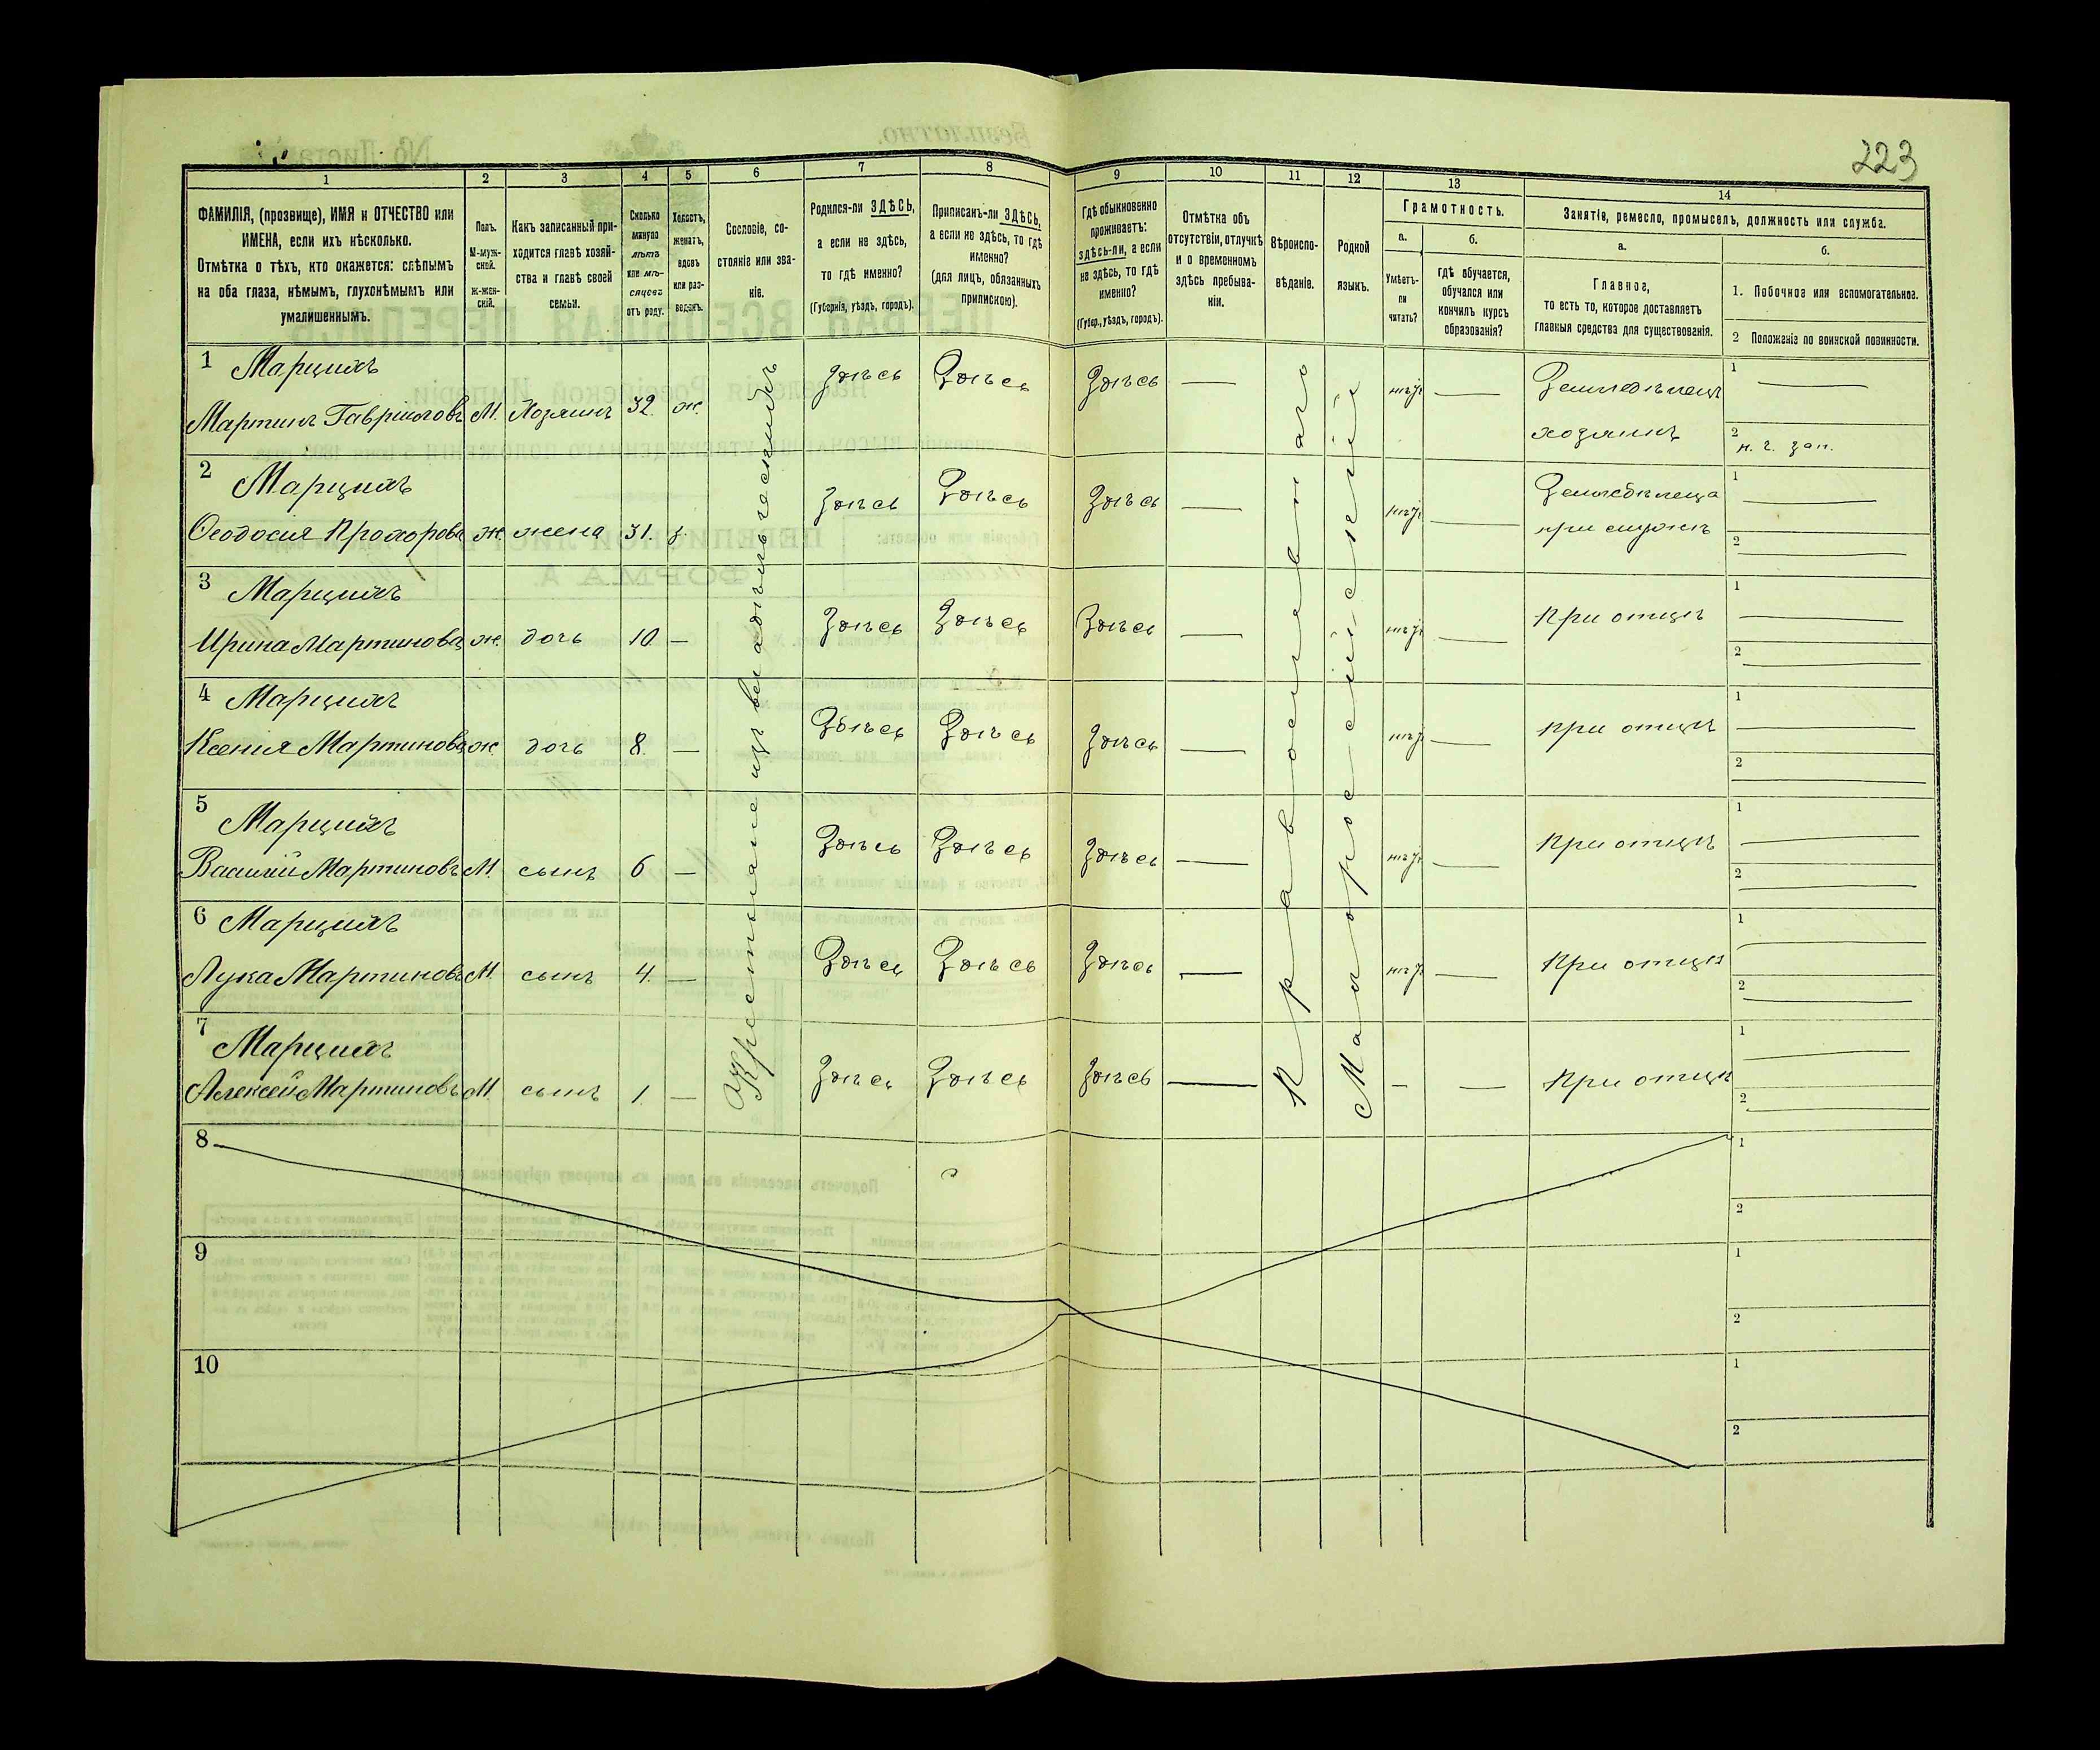 223
1 2 3 4 5 6 7 8 9 10 11 12 13 14
ФАМИЛІЯ, (прозвище), ИМЯ и ОТЧЕСТВО или
ИМЕНА, если ихъ нѣсколько.
Отмѣтка о тѣхъ, кто окажется: слѣпымъ
на оба глаза, нѣмымъ, глухонѣмымъ или
умалишеннымъ.
Полъ.
М-муж-
ской.
Ж-жен-
скій.
Какъ записанный при-
ходится главѣ хозяй-
ства и главѣ своей
семьи.
Сколько
минуло
лѣтъ
или мѣ-
сяцевъ
отъ роду.
Холостъ,
женатъ,
вдовъ
или раз-
веденъ.
Сословіе, со-
стояніе или зва-
ніе.
Родился-ли ЗДѢСЬ,
а если не здѣсь,
то гдѣ именно?
(Губернія, уѣздъ, городъ).
Приписанъ-ли ЗДѢСЬ,
а если не здѣсь, то гдѣ
именно?
(для лицъ, обязанныхъ
припискою).
Гдѣ обыкновенно
проживаетъ:
здѣсь-ли, а если
не здѣсь, то гдѣ
именно?
(Губер., уѣздъ, городъ).
Отмѣтка объ
отсутствіи, отлучкѣ
и о временномъ
здѣсь пребыва-
ніи.
Вѣроиспо-
вѣданіе.
Родной
языкъ.
Грамотность.
а.
Умѣетъ-
ли
читать?
б.
гдѣ обучается,
обучался или
кончилъ курсъ
образованія?
Занятіе, ремесло, промыселъ, должность или служба.
а.
Главное,
то есть то, которое доставляетъ
главныя средства для существованія.
б.
1. Побочное или вспомогательное.
2 Положеніе по воинской повинности.
Крестьяне изъ владѣльческихъ
Православнаго
Малороссійскій
1 Марцихъ Здѣсь Здѣсь Здѣсь — нѣтъ — Земледѣлецъ 1 —
Мартинъ Гавріиловъ М. Хозяинъ 32. ж. хозяинъ 2 н. ч. зап.
2 Марцихъ Здѣсь Здѣсь Здѣсь — нѣтъ — Земледѣлица 1 —
Ѳеодосія Прохорова ж. жена 31. з. при мужѣ 2 —
3 Марцихъ Здѣсь Здѣсь Здѣсь — нѣтъ — При отцѣ 1 —
Ирина Мартинова ж. дочь 10. — 2 —
4 Марцихъ Здѣсь Здѣсь Здѣсь — нѣтъ — при отцѣ 1 —
Ксенія Мартинова ж. дочь 8. — 2 —
5 Марцихъ Здѣсь Здѣсь Здѣсь — нѣтъ — При отцѣ 1 —
Василій Мартиновъ М. сынъ 6 — 2 —
6 Марцихъ Здѣсь Здѣсь Здѣсь — нѣтъ — При отцѣ 1 —
Лука Мартиновъ М. сынъ 4. — 2 —
7 Марцихъ Здѣсь Здѣсь Здѣсь — — — При отцѣ 1 —
Алексѣй Мартиновъ М. сынъ 1. — 2 —
8 1
2
9 1
2
10 1
2